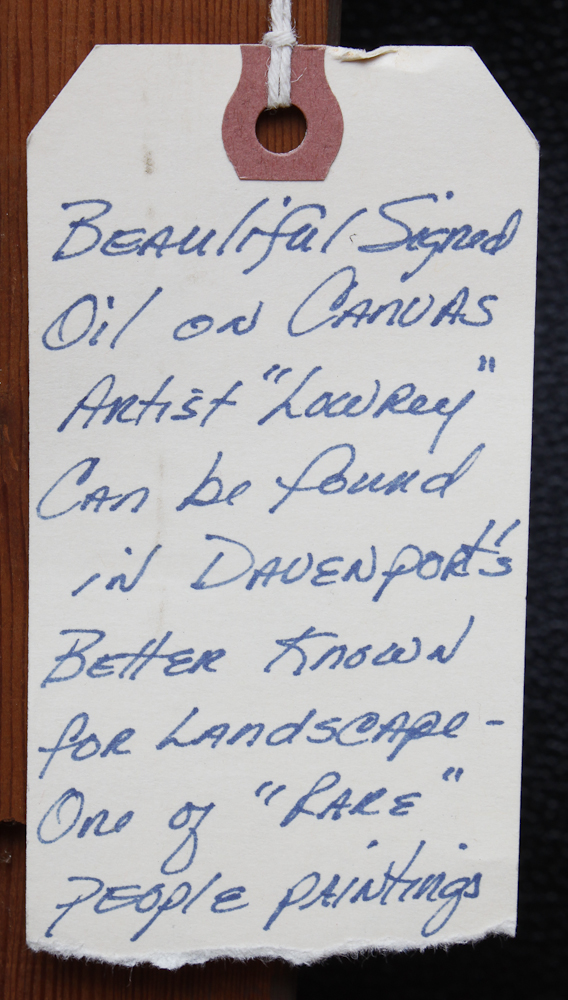 Beautiful Signed
Oil on Canvas
Artist "Lowrey"
Can be found
in Davenport's
Better Known
for Landscape -
One of "Rare"
People paintings